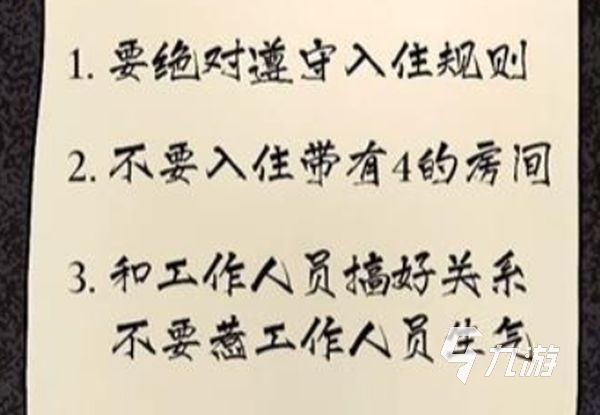 1. 要绝对遵守入住规则
2. 不要入住带有4的房间
3. 和工作人员搞好关系
不要惹工作人员生气
九游